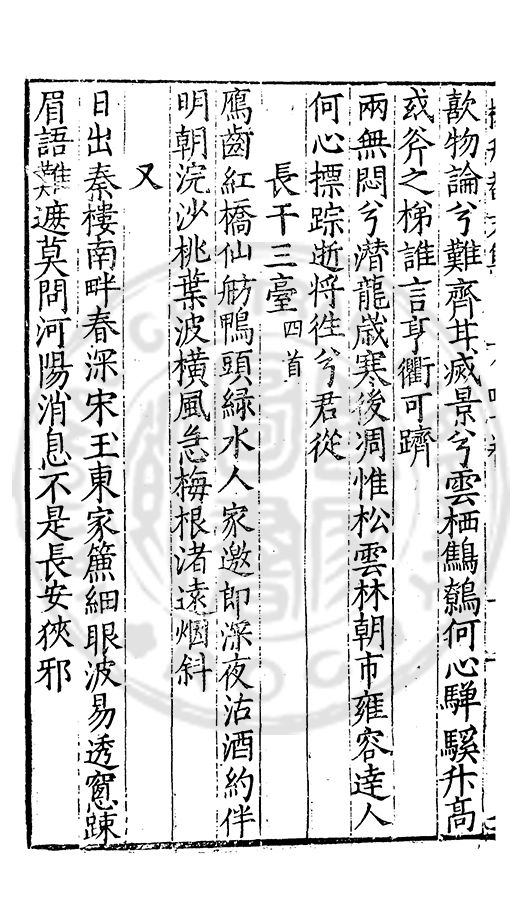 歊物論兮難齊其滅景兮雲栖鷦鷯何心驊騮升高
或斧之梯誰言亨衢可躋
兩無悶兮潛龍歲寒後凋惟松雲林朝市雍容達人
何心摽踪逝將徃兮君從
長干三臺四首
鴈齒紅橋仙舫鴨頭緑水人家邀郎深夜沽酒約伴
明朝浣沙桃葉波橫風急梅根渚遠烟斜
又
日出秦樓南畔春深宋玉東家簾細眼波易透窻踈
眉語難遮莫問河陽消息不是長安狹邪